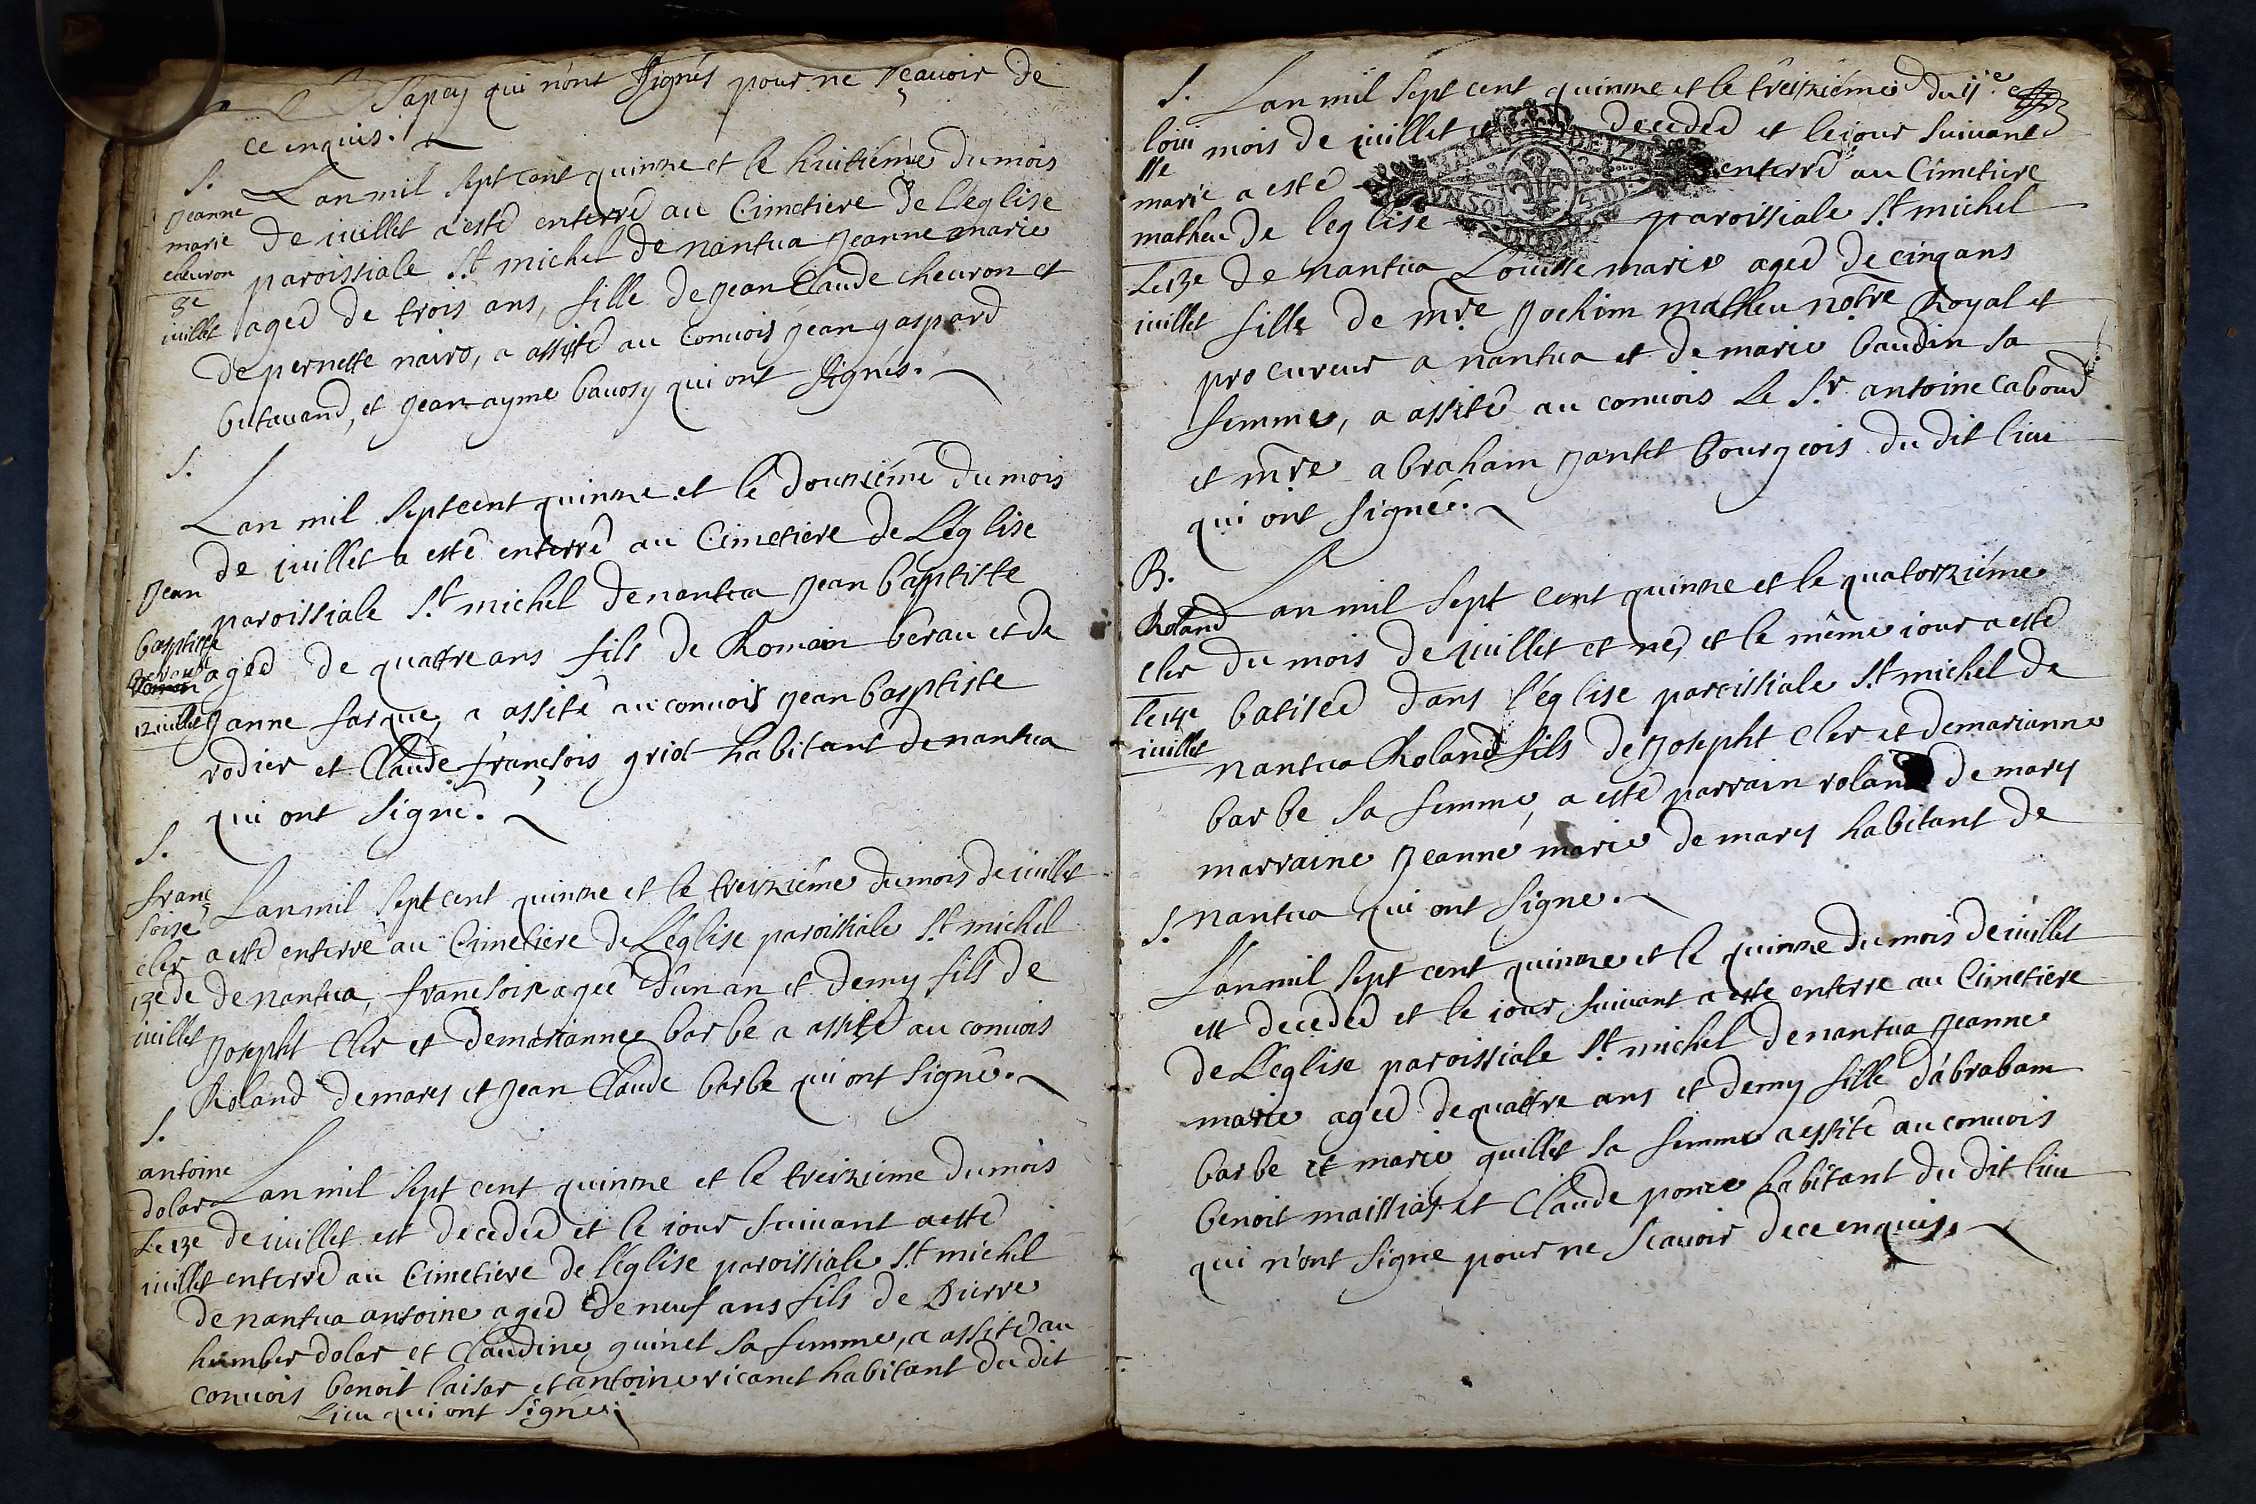 Sapey qui n'ont signés pour ne sçauoir de
ce enquis.
S.
Jeanne
marie
cheuron
8e
iuillet
Lan mil sept cent quinze et le huitiéme du mois
de iuillet a esté enterré au Cimetiere de L'église
paroissiale St michel de nantua Jeanne marie
aged de trois ans, fille de Jean Claude cheuron et
de pernette nairo, a assisté au conuois Jean gaspard
butauand, et Jean ayme bauosy qui ont signés.
S.
Jean
baptiste
12 iuillet
Lan mil sept cent quinze et le douziéme du mois
de iuillet a esté enterré au Cimetiere de L'église
paroissiale St michel de nantua Jean baptiste
aged de quattre ans fils de Romain bérau et de
Janne farque, a assité au conuois Jean baptiste
rodier et Claude françois griot habitant de nantua
qui ont signé.
S.
franç
soise
cler
13e de
iuillet
Lan mil sept cent quinze et le treiziéme du mois de iuillet
a esté enterré au Cimetiere de L'église paroissiale St michel
de nantua, francsoise agee d'un an et demy fils de
Josepht Cler et de marianne barbe a assité au conuois
Roland demares et Jean Claude barbe qui ont signé.
S.
antoine
dolar
Le 13e
iuillet
Lan mil sept cent quinze et le treizieme du mois
de iuillet est decedé et le iour suiuant a esté
enterré au Cimetiere de l'église paroissiale St michel
de nantua antoine aged de neuf ans fils de Pierre
humber dolar et Claudine guinet sa femme, a assité au
conuois benoit laisar et antoine ricanet habitant du dit
Lieu qui ont signé.
S.
loüi
sse
marie
matheu
Le 13e
iuillet
Lan mil sept cent quinze et le treiziéme du
mois de iuillet decedé et le iour suiuant
a esté enterré au Cimetiere
de leglise paroissiale St michel
de nantua Louisse marie aged de cinq ans
fille de mre Jochim matheu notre Royal et
procureur a nantua et de marie baudin sa
femme, a assité au conuois Le Sr antoine Caboud
et mre abraham Jantet bourgeois du dit lieu
qui ont signé.
B.
Roland
cler
le 14e
iuillet
Lan mil sept cent quinze et le quatorziéme
du mois de iuillet et né, et le même iour a esté
batisé dans l'église paroissiale St michel de
nantua Roland fils de Josepht Cler et de marianne
barbe sa femme, a esté parrain roland de mares
marraine Jeanne marie de mares habitant de
nantua qui ont signe.
S.
Lan mil sept cent quinze et le quinze du mois de iuillet
est decedé et le iour suiuant a esté enterre au Cimetiere
de L'église paroissiale St michel de nantua Jeanne
marie aged de quattre ans et demy fille d'abraham
barbe et marie guillet sa femme a assité au conuois
benoit maissiat et Claude ponce habitant du dit lieu
qui n'ont signe pour ne scauoir de ce enquis.